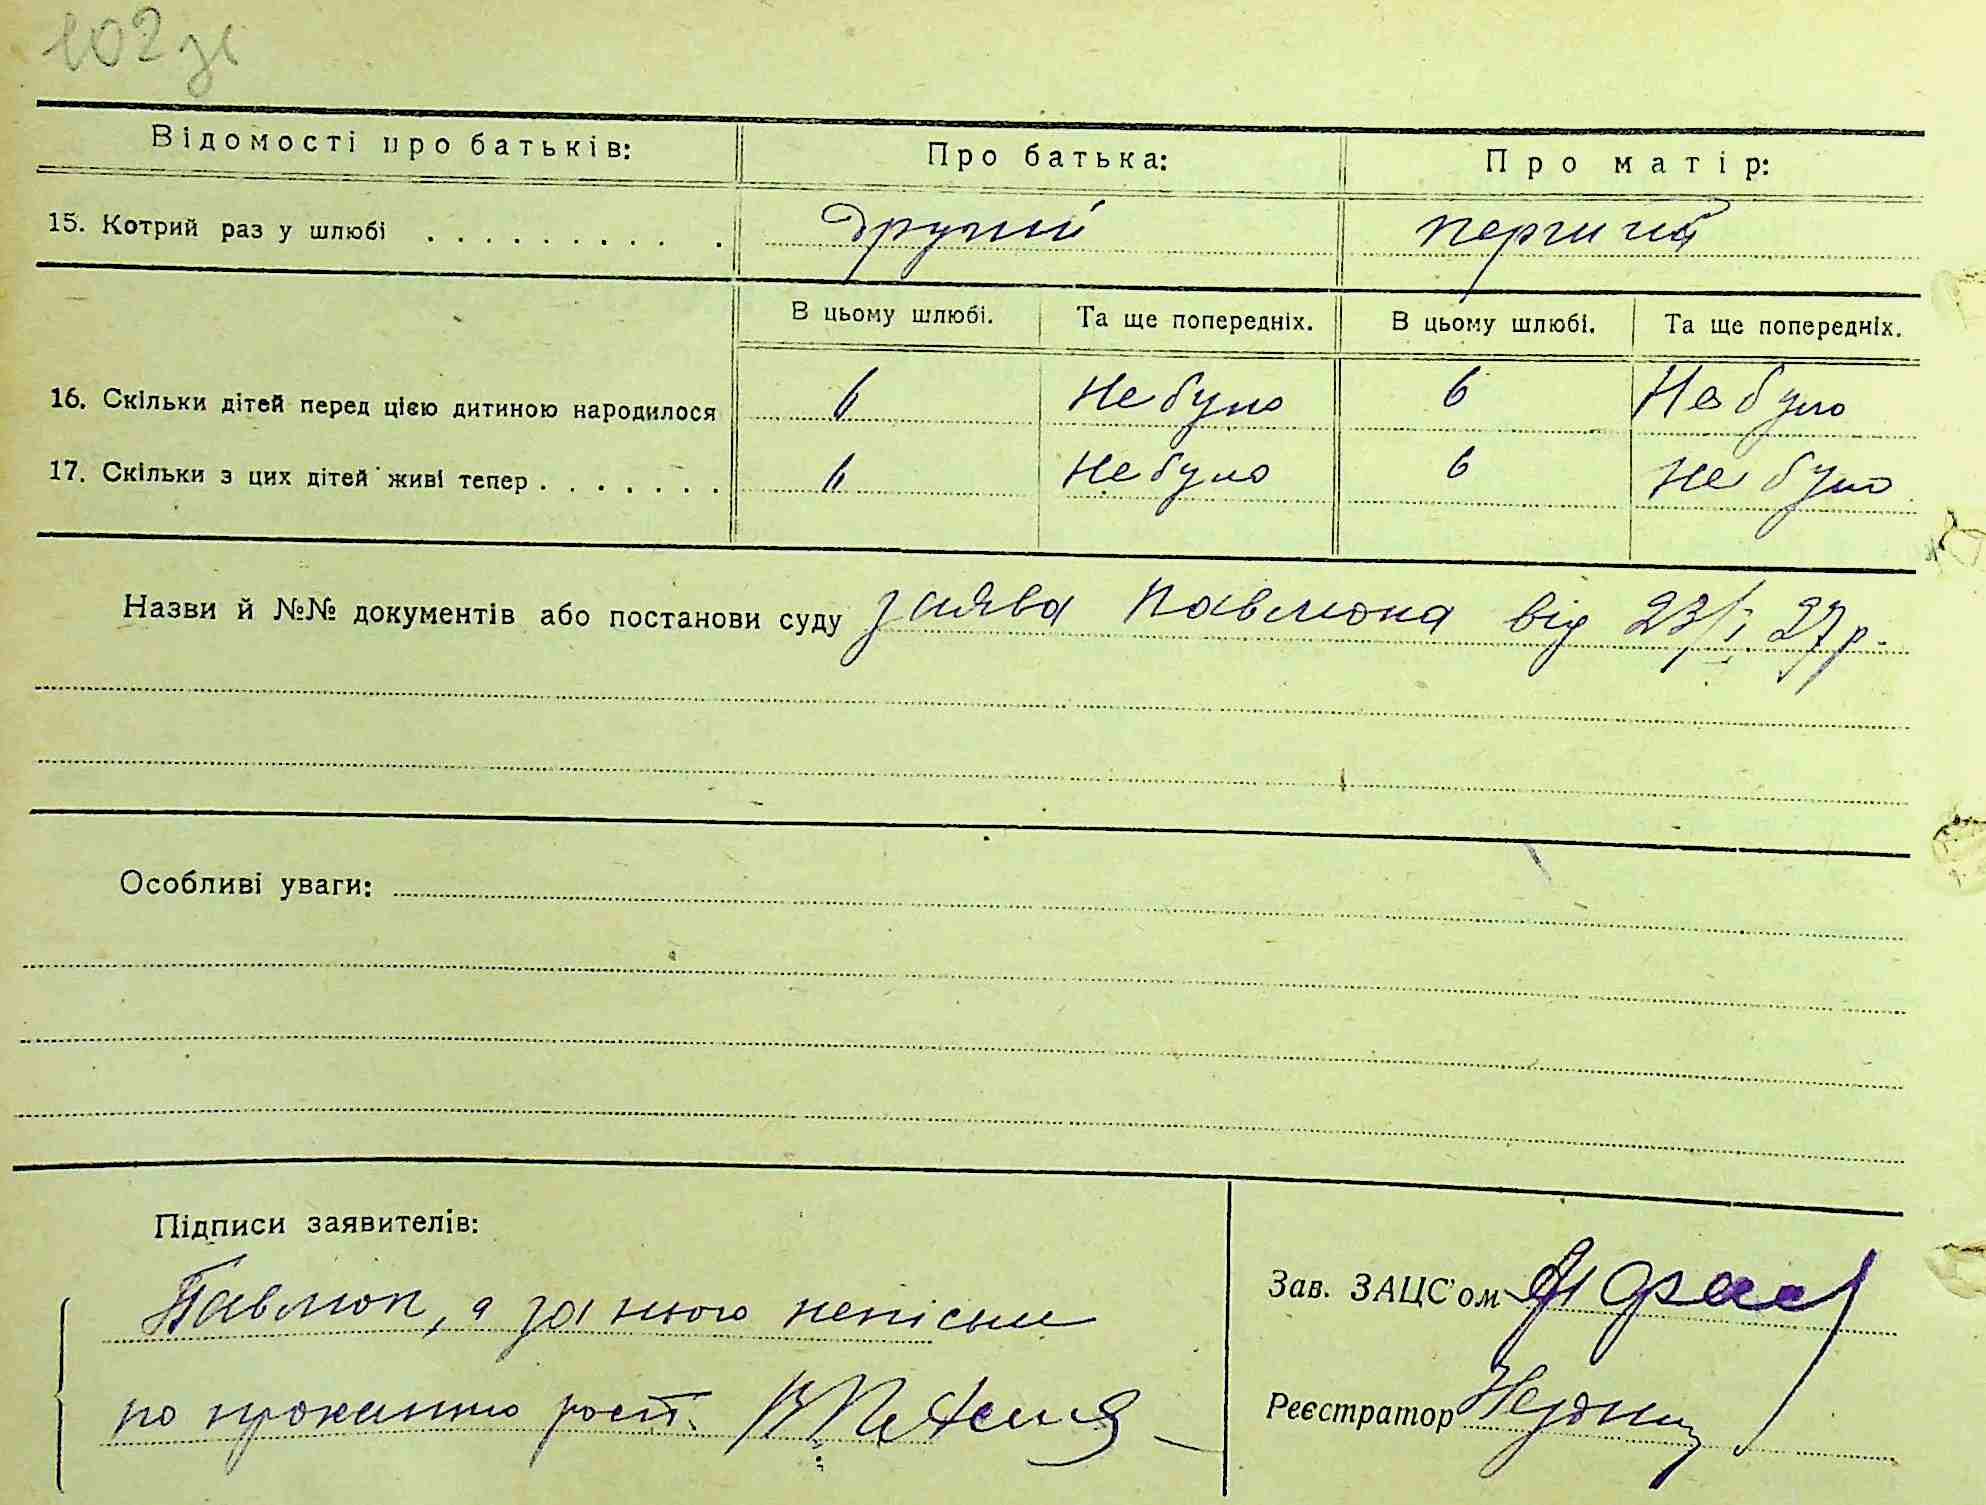 102 зв
Відомості про батьків: Про батька: Про матір:
15. Котрий раз у шлюбі . . . . . . . . . . . другий перший
В цьому шлюбі. Та ще попередніх. В цьому шлюбі. Та ще попередніх.
16. Скільки дітей перед цією дитиною народилося 6 Не було 6 Не було
17. Скільки з цих дітей живі тепер . . . . . . . 6 Не було 6 Не було
Назви й №№ документів або постанови суду заява Павлюка від 23/I 27 р.
Особливі уваги:
Підписи заявителів:
Павлюк, а за нього неписьм
по проханню розп.
Зав. ЗАЦС'ом
Реєстратор